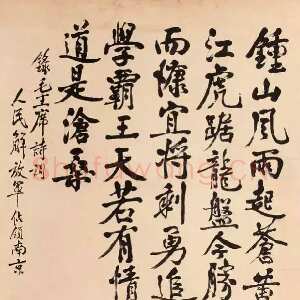 鍾山風雨起蒼黄
江虎踞龍盤今勝
而慷宜將剩勇追
學霸王天若有情
道是滄桑
錄毛主席詩詞
人民解放軍佔領南京